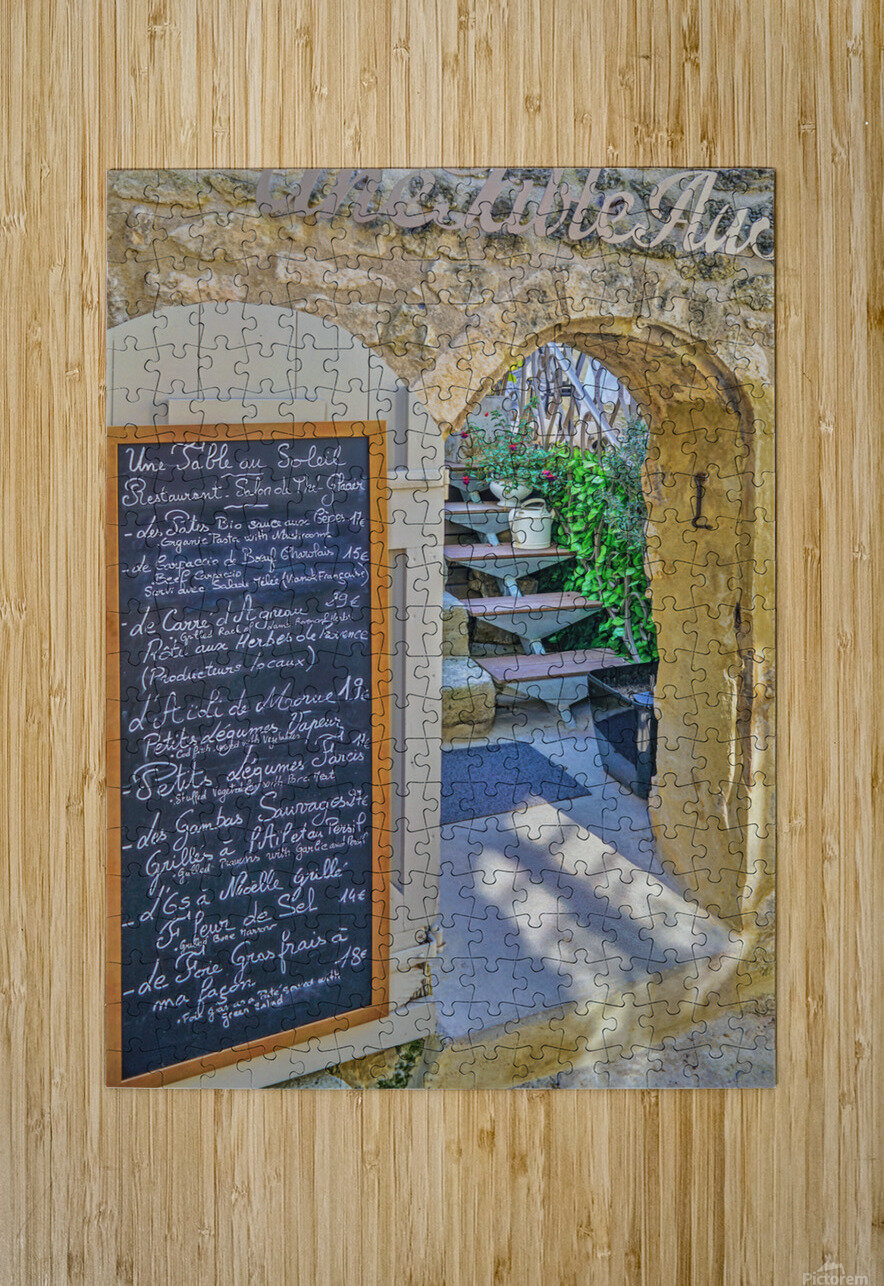 Une Table Au
Une Table au Soleil
Restaurant - Salon de Thé - Glacier
- Les Pâtes Bio sauce aux Cèpes 17€
. Organic Pasta with Mushrooms
- Le Carpaccio de Bœuf Charolais 15€
Beef Carpaccio
Servi avec Salade Mêlée (Viande Française)
- Le Carre d'Agneau 29€
. Grilled Rack of Lamb
Rôti aux Herbes de Provence
(Producteurs locaux)
L'Aïoli de Morue 19€
Petits légumes Vapeur
with Vegetables
- Petits légumes Farcis
. Stuffed Vegetables with
- Les Gambas Sauvages 27€
Grilles à l'Ail et au Persil
. Grilled Prawns with Garlic and
- L'Os à Moelle grillé
Fleur de Sel 14€
. Grilled Bone Marrow
- Le Foie Gras frais à
ma façon 18€
. Foie gras as a Pâté served with
green salad
Pictorem